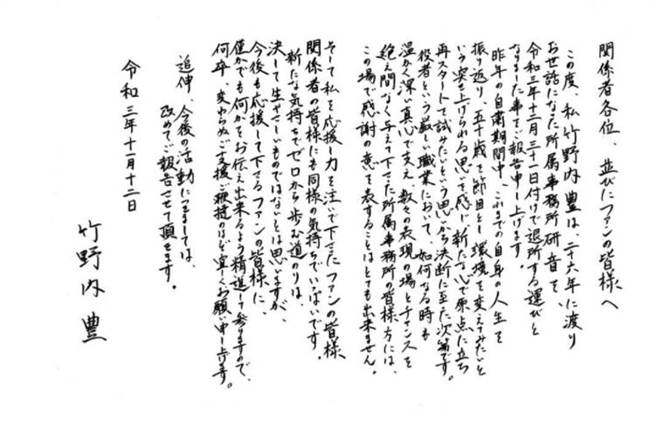 関係者各位、並びにファンの皆様へ
この度、私竹野内豊は、二十六年に渡り
お世話になった所属事務所研音を、
令和三年十二月三十一日付けで退所する運びと
なりました事をご報告申し上げます。
昨年の自粛期間中、これまでの自身の人生を
振り返り、五十歳を節目とし環境を変えてみたいと
いう突き上げられる思いを感じ新たな心で原点に立ち
再スタートして試みたいという思いから決断に至った次第です。
役者という厳しい職業において、如何なる時も
温かく深い真心で支え、数々の表現の場とチャンスを
絶え間なく与えて下さった所属事務所の皆様方には、
この場で感謝の意を表することはとても出来ません。
そして私を応援し力を注いで下さったファンの皆様、
関係者の皆様にも同様の気持ちでいっぱいです。
新たな気持ちでゼロから歩む道のりは、
決して生やさしいものではないとは思いますが、
今後も応援して下さるファンの皆様に、
僅かでも何かをお伝え出来るよう精進して参りますので、
何卒、変わらぬご支援ご鞭撻のほど宜しくお願い申し上げます。
追伸 今後の活動につきましては、
改めてご報告させて頂きます。
令和三年十一月十二日
竹野内豊